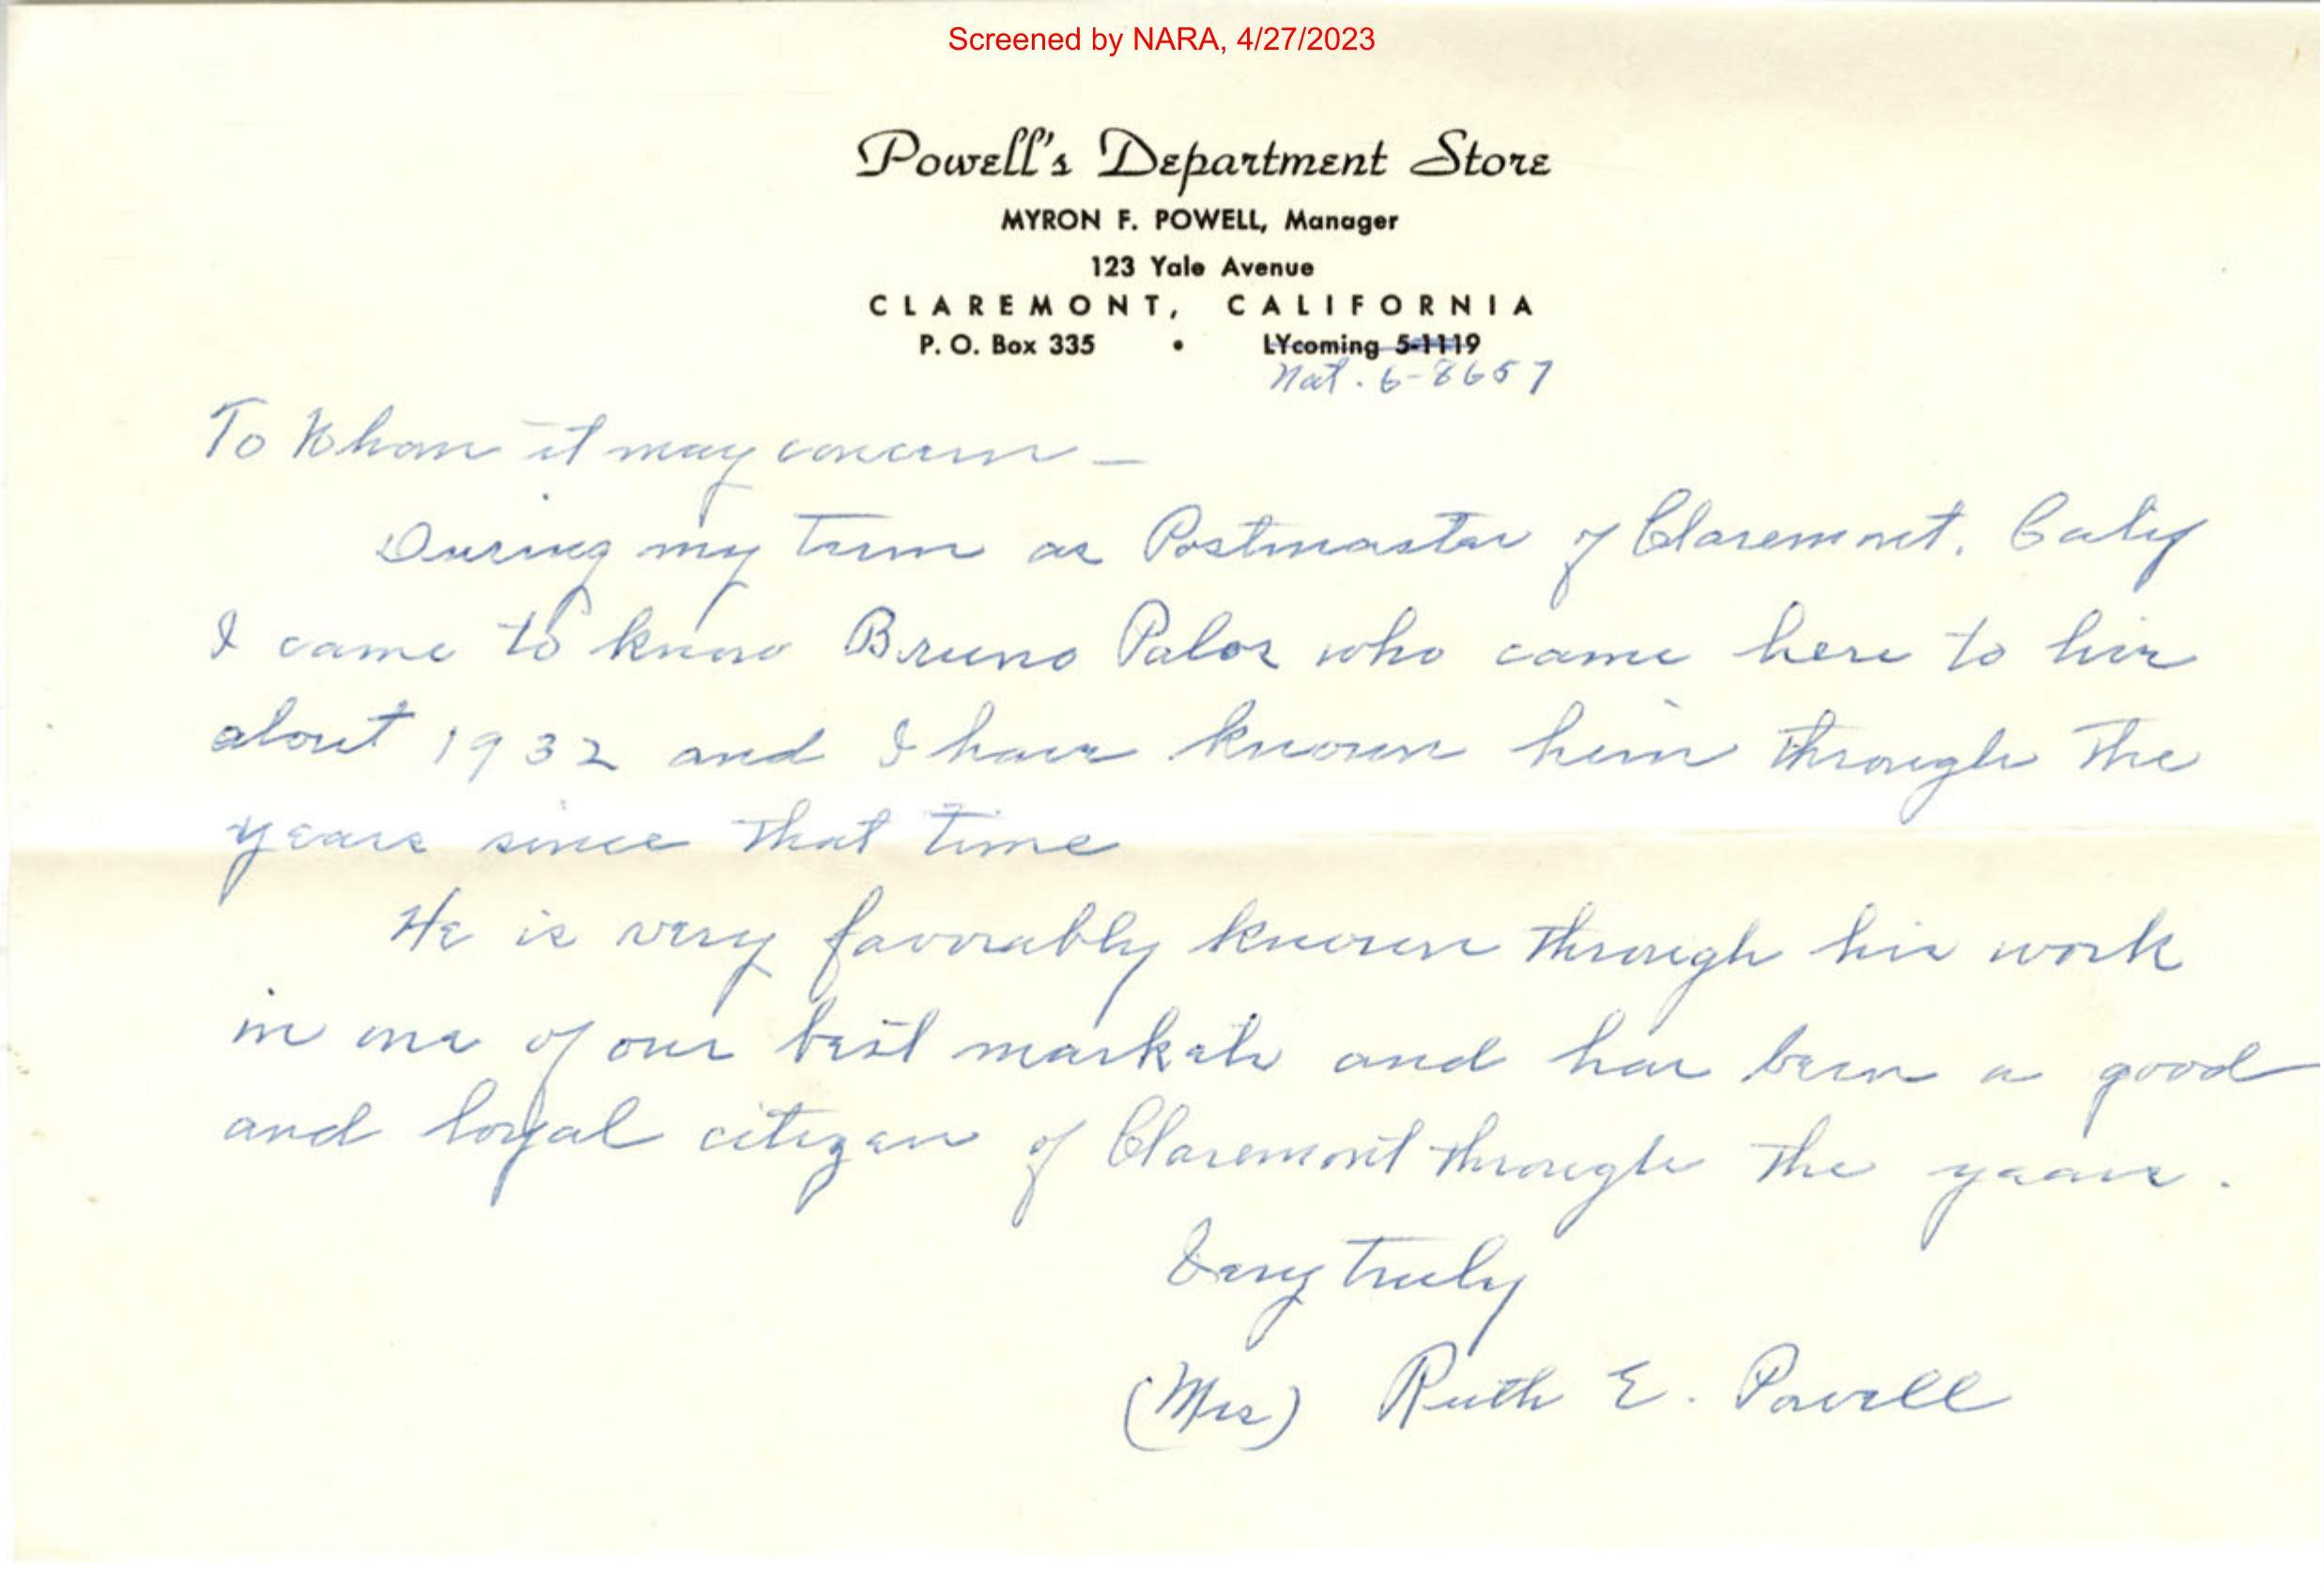 Screened by NARA, 4/27/2023
Powell's Department Store
MYRON F. POWELL, Manager
123 Yale Avenue
CLAREMONT, CALIFORNIA
P. O. Box 335 • LYcoming 5-1119
Nat. 6-8657
To Whom it may concern —
During my term as Postmaster of Claremont, Calif
I came to know Bruno Palos who came here to live
about 1932 and I have known him through the
years since that time
He is very favorably known through his work
in one of our best markets and has been a good
and loyal citizen of Claremont through the years.
Very truly
(Mrs) Ruth E. Powell